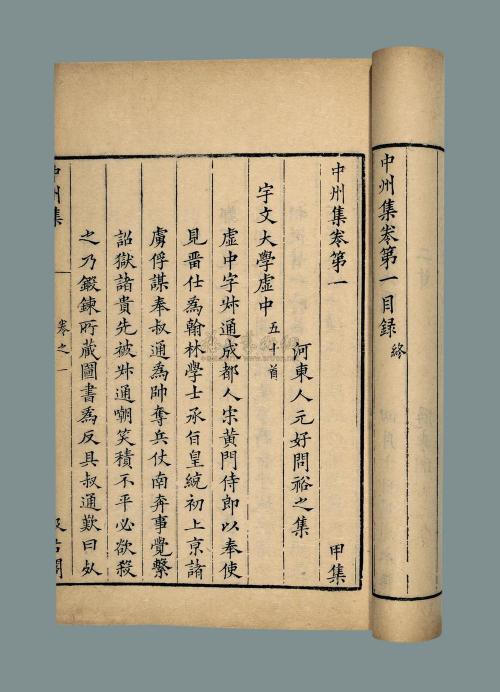 中州集卷第一目録 終
中州集卷第一 甲集
河東人元好問裕之集
宇文大學虛中 五十首
虛中字叔通成都人宋黃門侍郎以奉使
見畱仕爲翰林學士承旨皇統初上京諸
虜俘謀奉叔通爲帥奪兵仗南奔事覺繫
詔獄諸貴先被叔通嘲笑積不平必欲殺
之乃鍛鍊所藏圖書爲反具叔通歎曰死
中州集 卷之一 汲古閣